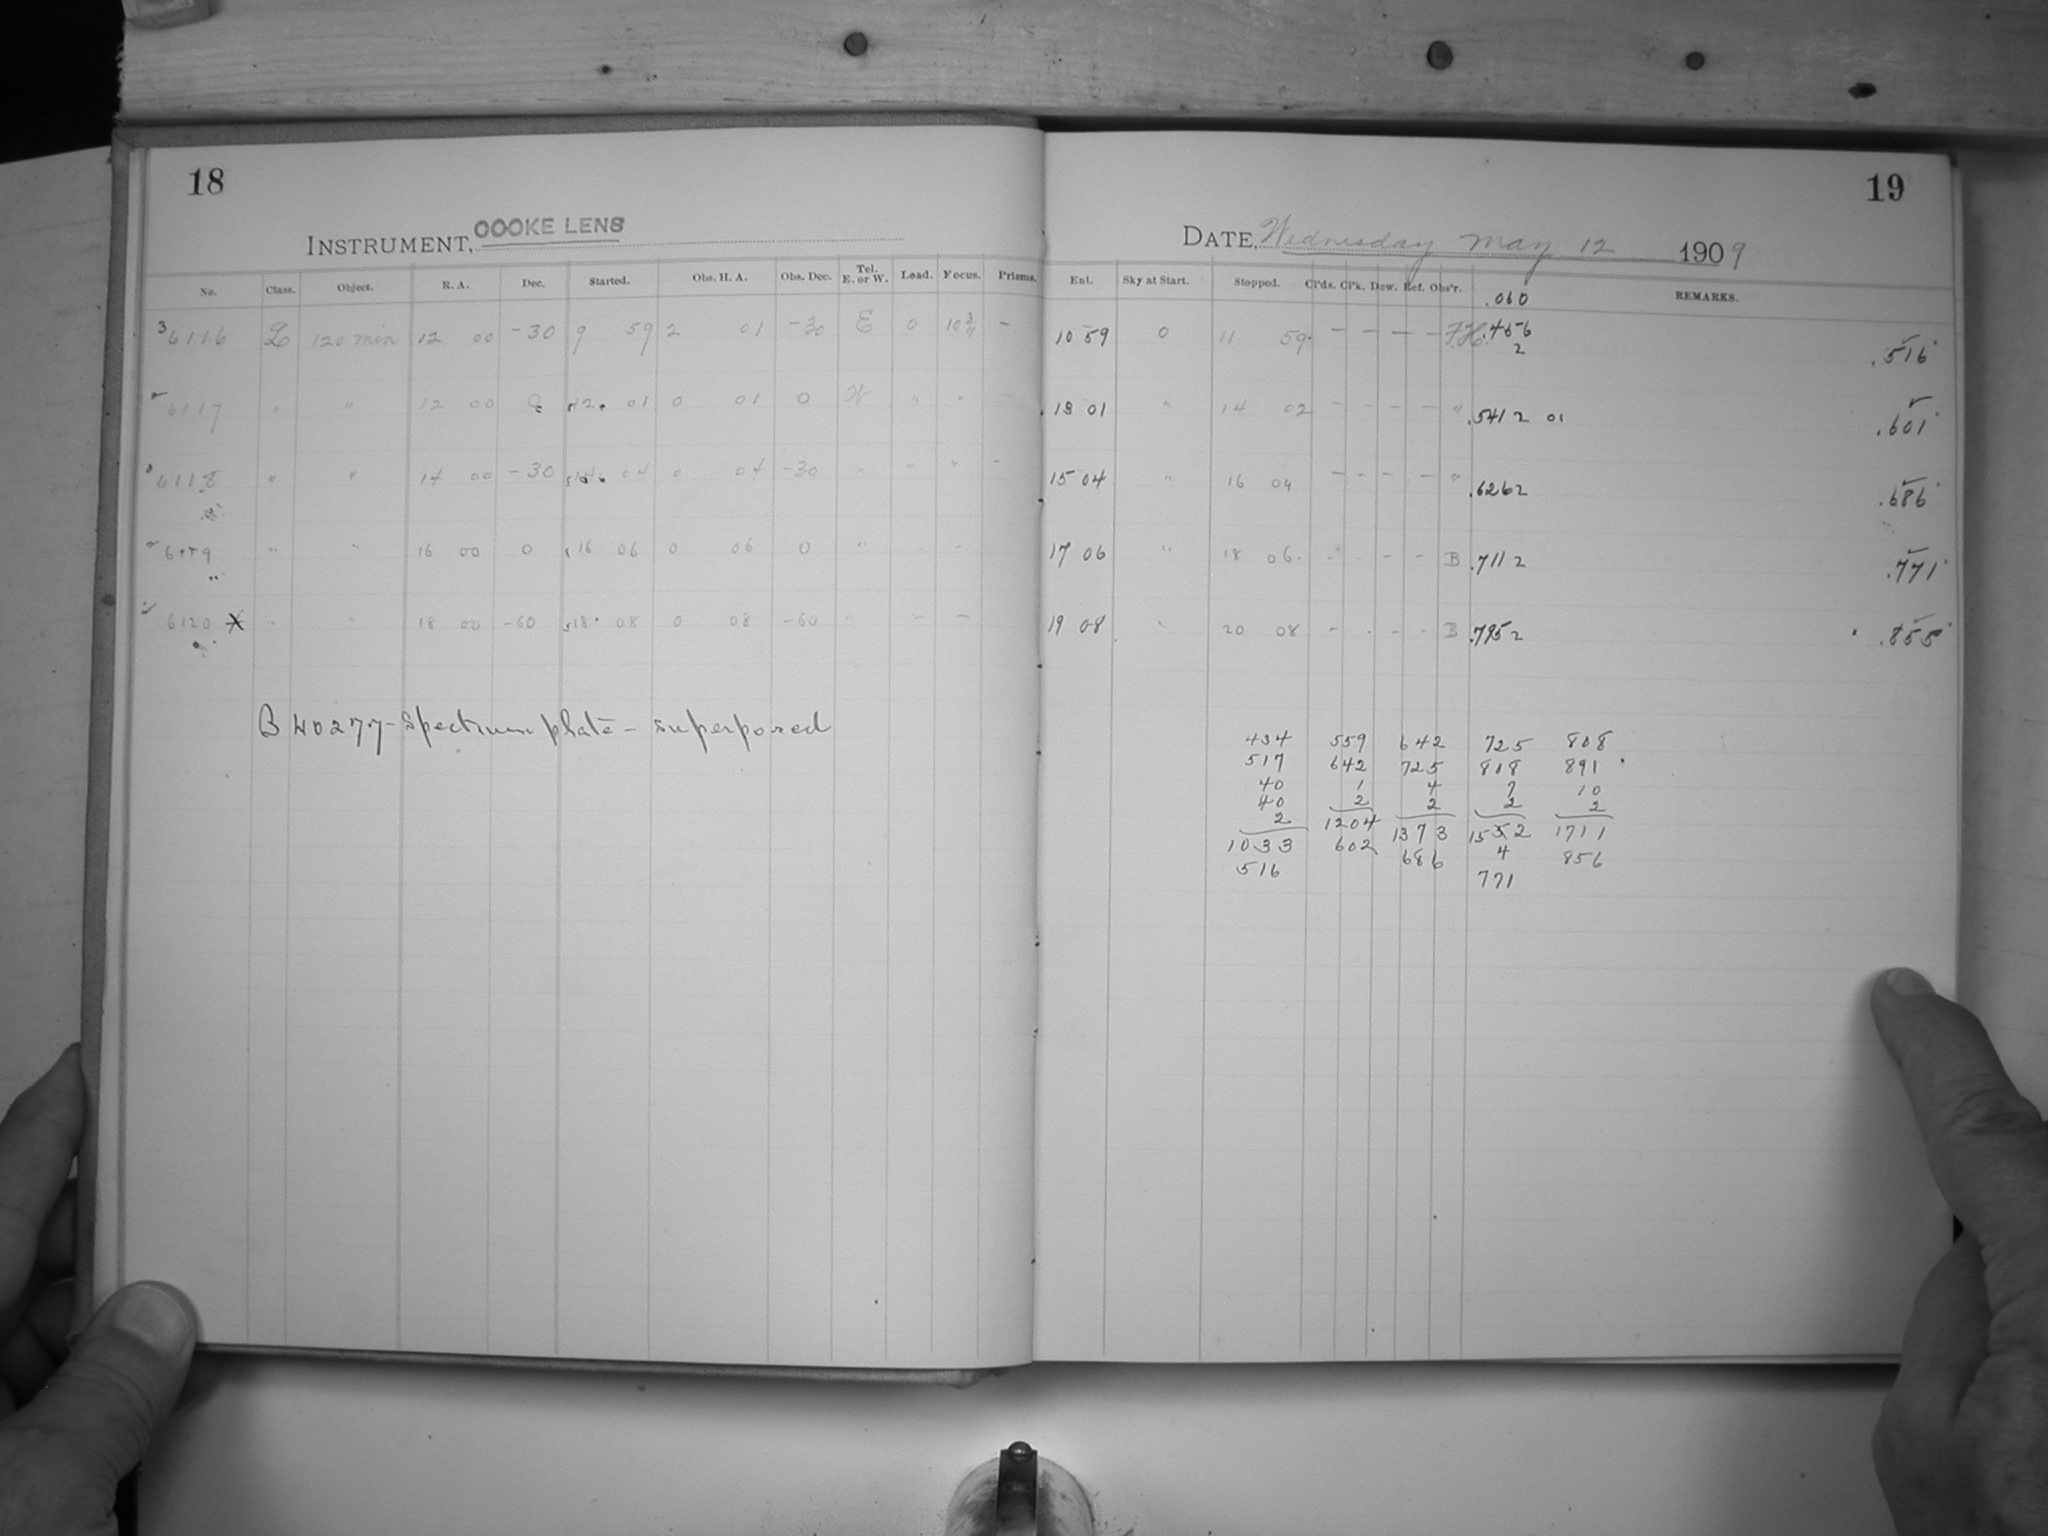 18
INSTRUMENT, COOKE LENS
No. Class. Object. R. A. Dec. Started. Obs. H. A. Obs. Dec. Tel. E. or W. Load. Focus. Prisms.
3 6116 L 120 min 12 00 -30 9 59 2 01 -30 E 0 –
6117 " " 12 00 0 12 01 0 01 0 W " "
6118 " " 14 00 -30 04 0 04 -30 " – " –
6119 " " 16 00 0 16 06 0 06 0 "
6120 X " " 18 00 -60 18 08 0 08 -60
B 40277 - Spectrum plate - superposed
19
DATE, Wednesday May 12 1909
Enl. Sky at Start. Stopped. Cl'ds. Cl'k. Dew. Ref. Obs'r. REMARKS.
.060
10 59 0 11 59 – – – – F.H. .456 .516
2
13 01 " 14 02 – – – – " .541 2 01 .601
15 04 " 16 04 – – – – " .626 2 .686
17 06 " 18 06 – – – – B .711 2 .771
19 08 " 20 08 – – – – B .795 2 .855
434 559 642 725 808
517 642 725 808 891
40 1 4 7 10
40 2 2 2 2
2 1204 1373 1552 1711
1033 602 686 4 856
516 771